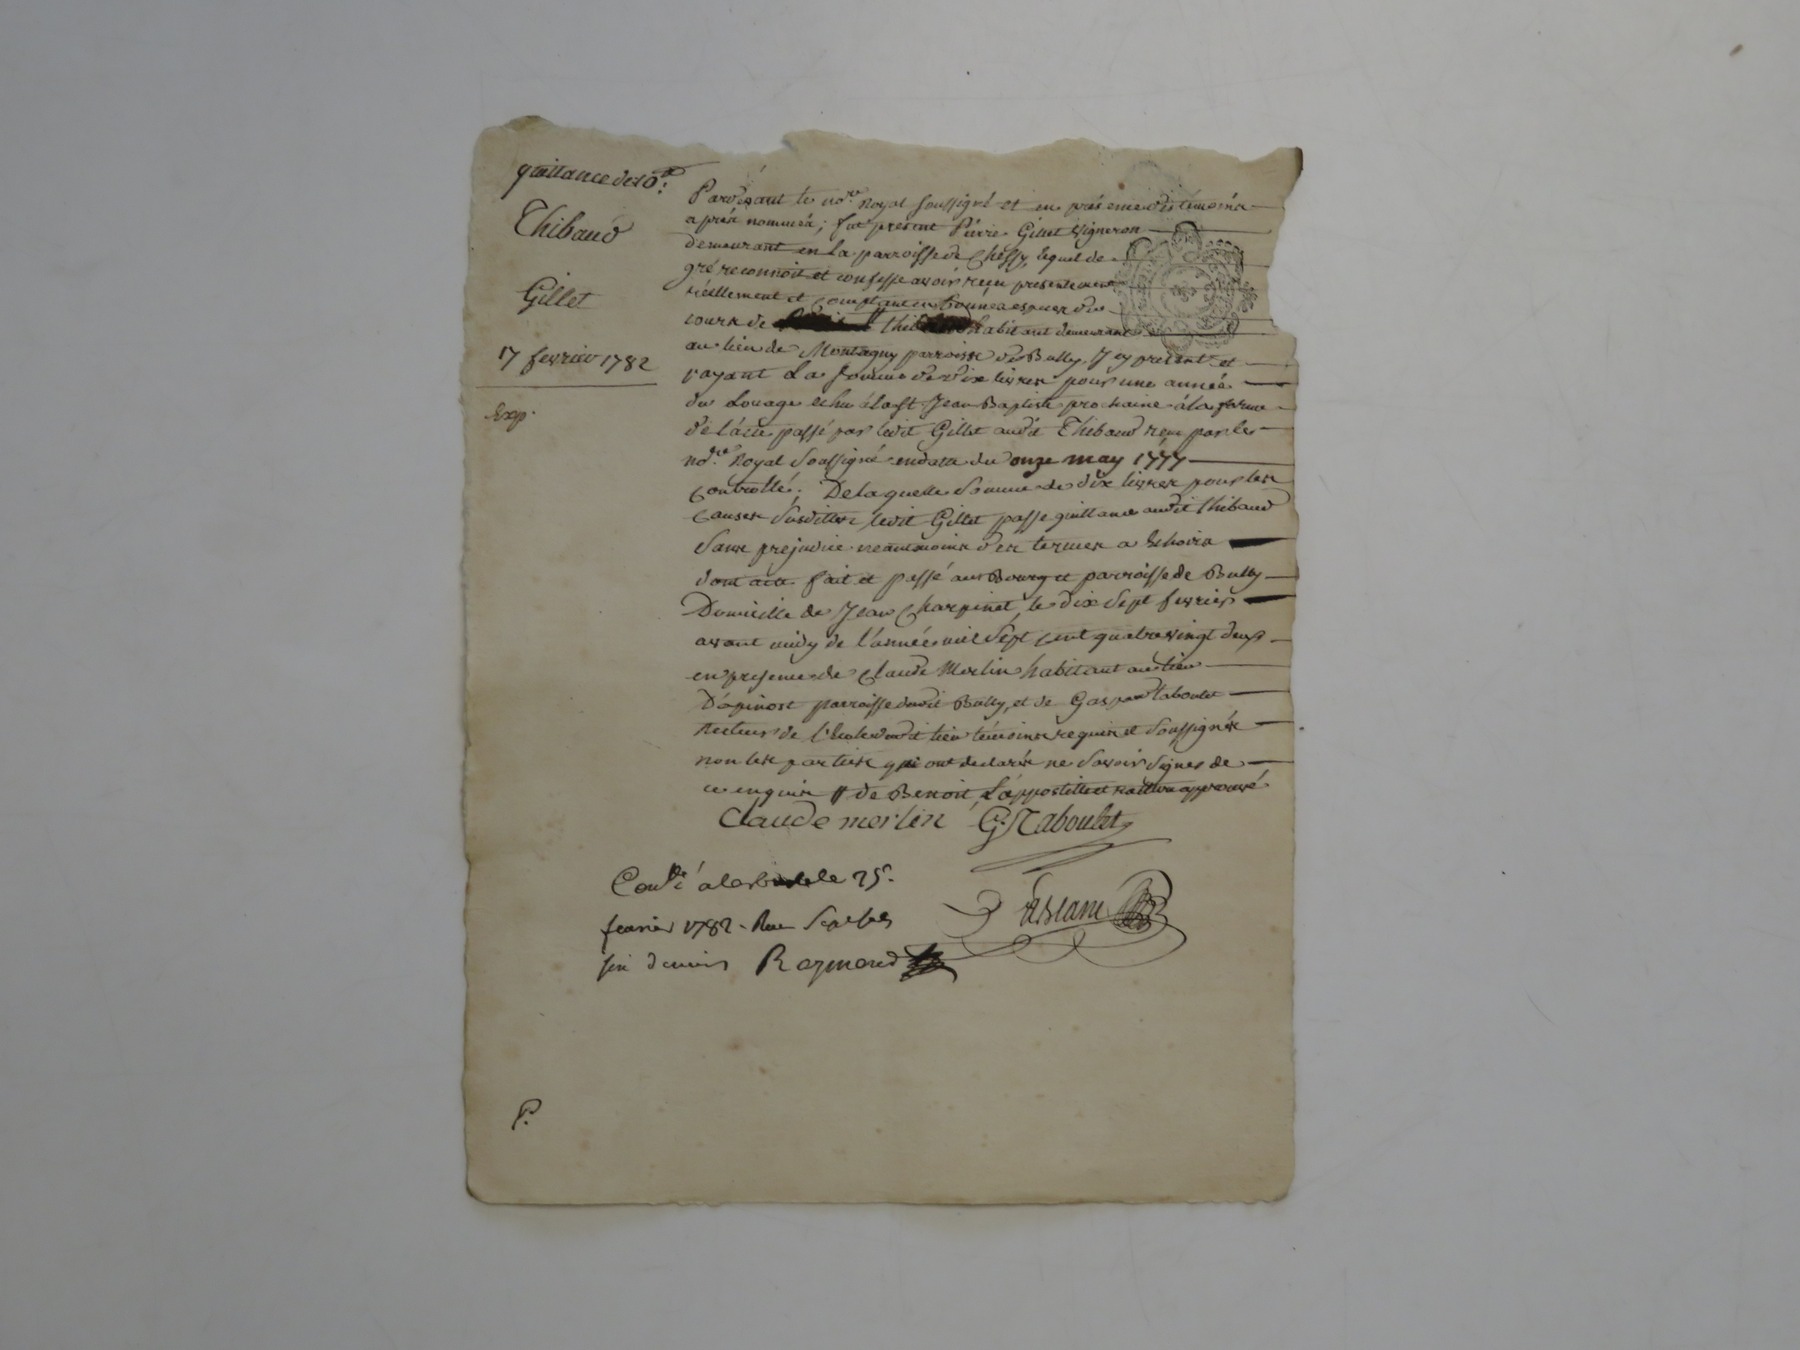 quittance de 10.#
Thibaud
Gillet
17 fevrier 1782
Exp.
Pardevant le no.re Royal soussigné et en présence des témoins
après nommés; fut présent Pierre Gillet vigneron
demeurant en la parroisse de Chessy, lequel de
gré reconnoit et confesse avoir reçu presentement
réellement et comptant en bonnes especes du
cours de # Thibaud habitant demeurant
au lieu de Montagny parroisse de Bully, Icy présent et
payant La somme de dix livres pour une année
du Louage echu à la St Jean Baptiste prochaine à la forme
de l'acte passé par ledit Gillet audit Thibaud reçu par le
no.re Royal Soussigné en date du onze may 1777
Controllé; De laquelle somme de dix livres pour les
causes susdittes, ledit Gillet passe quittance audit thibaud
sans prejudice neantmoins des termes a Echoirs
dont acte fait et passé au Bourg et parroisse de Bully
Domicille de Jean Charpinet, le dix sept fevrier
avant midy de l'année mil sept cent quatrevingt deux
en presence de Claude Merlin habitant au lieu
D'apinost parroisse dudit Bully, et de Gaspard taboulet
Recteur de l'Ecole dudit lieu témoins requis et soussignés
non les parties qui ont declarés ne savoir signer de
ce enquis # de Benoit, L'appostille et rature approuvé
Claude merlin G. Taboulet
Con.lé à le 25.
fevrier 1782. Reçu
six deniers Raymond
P.